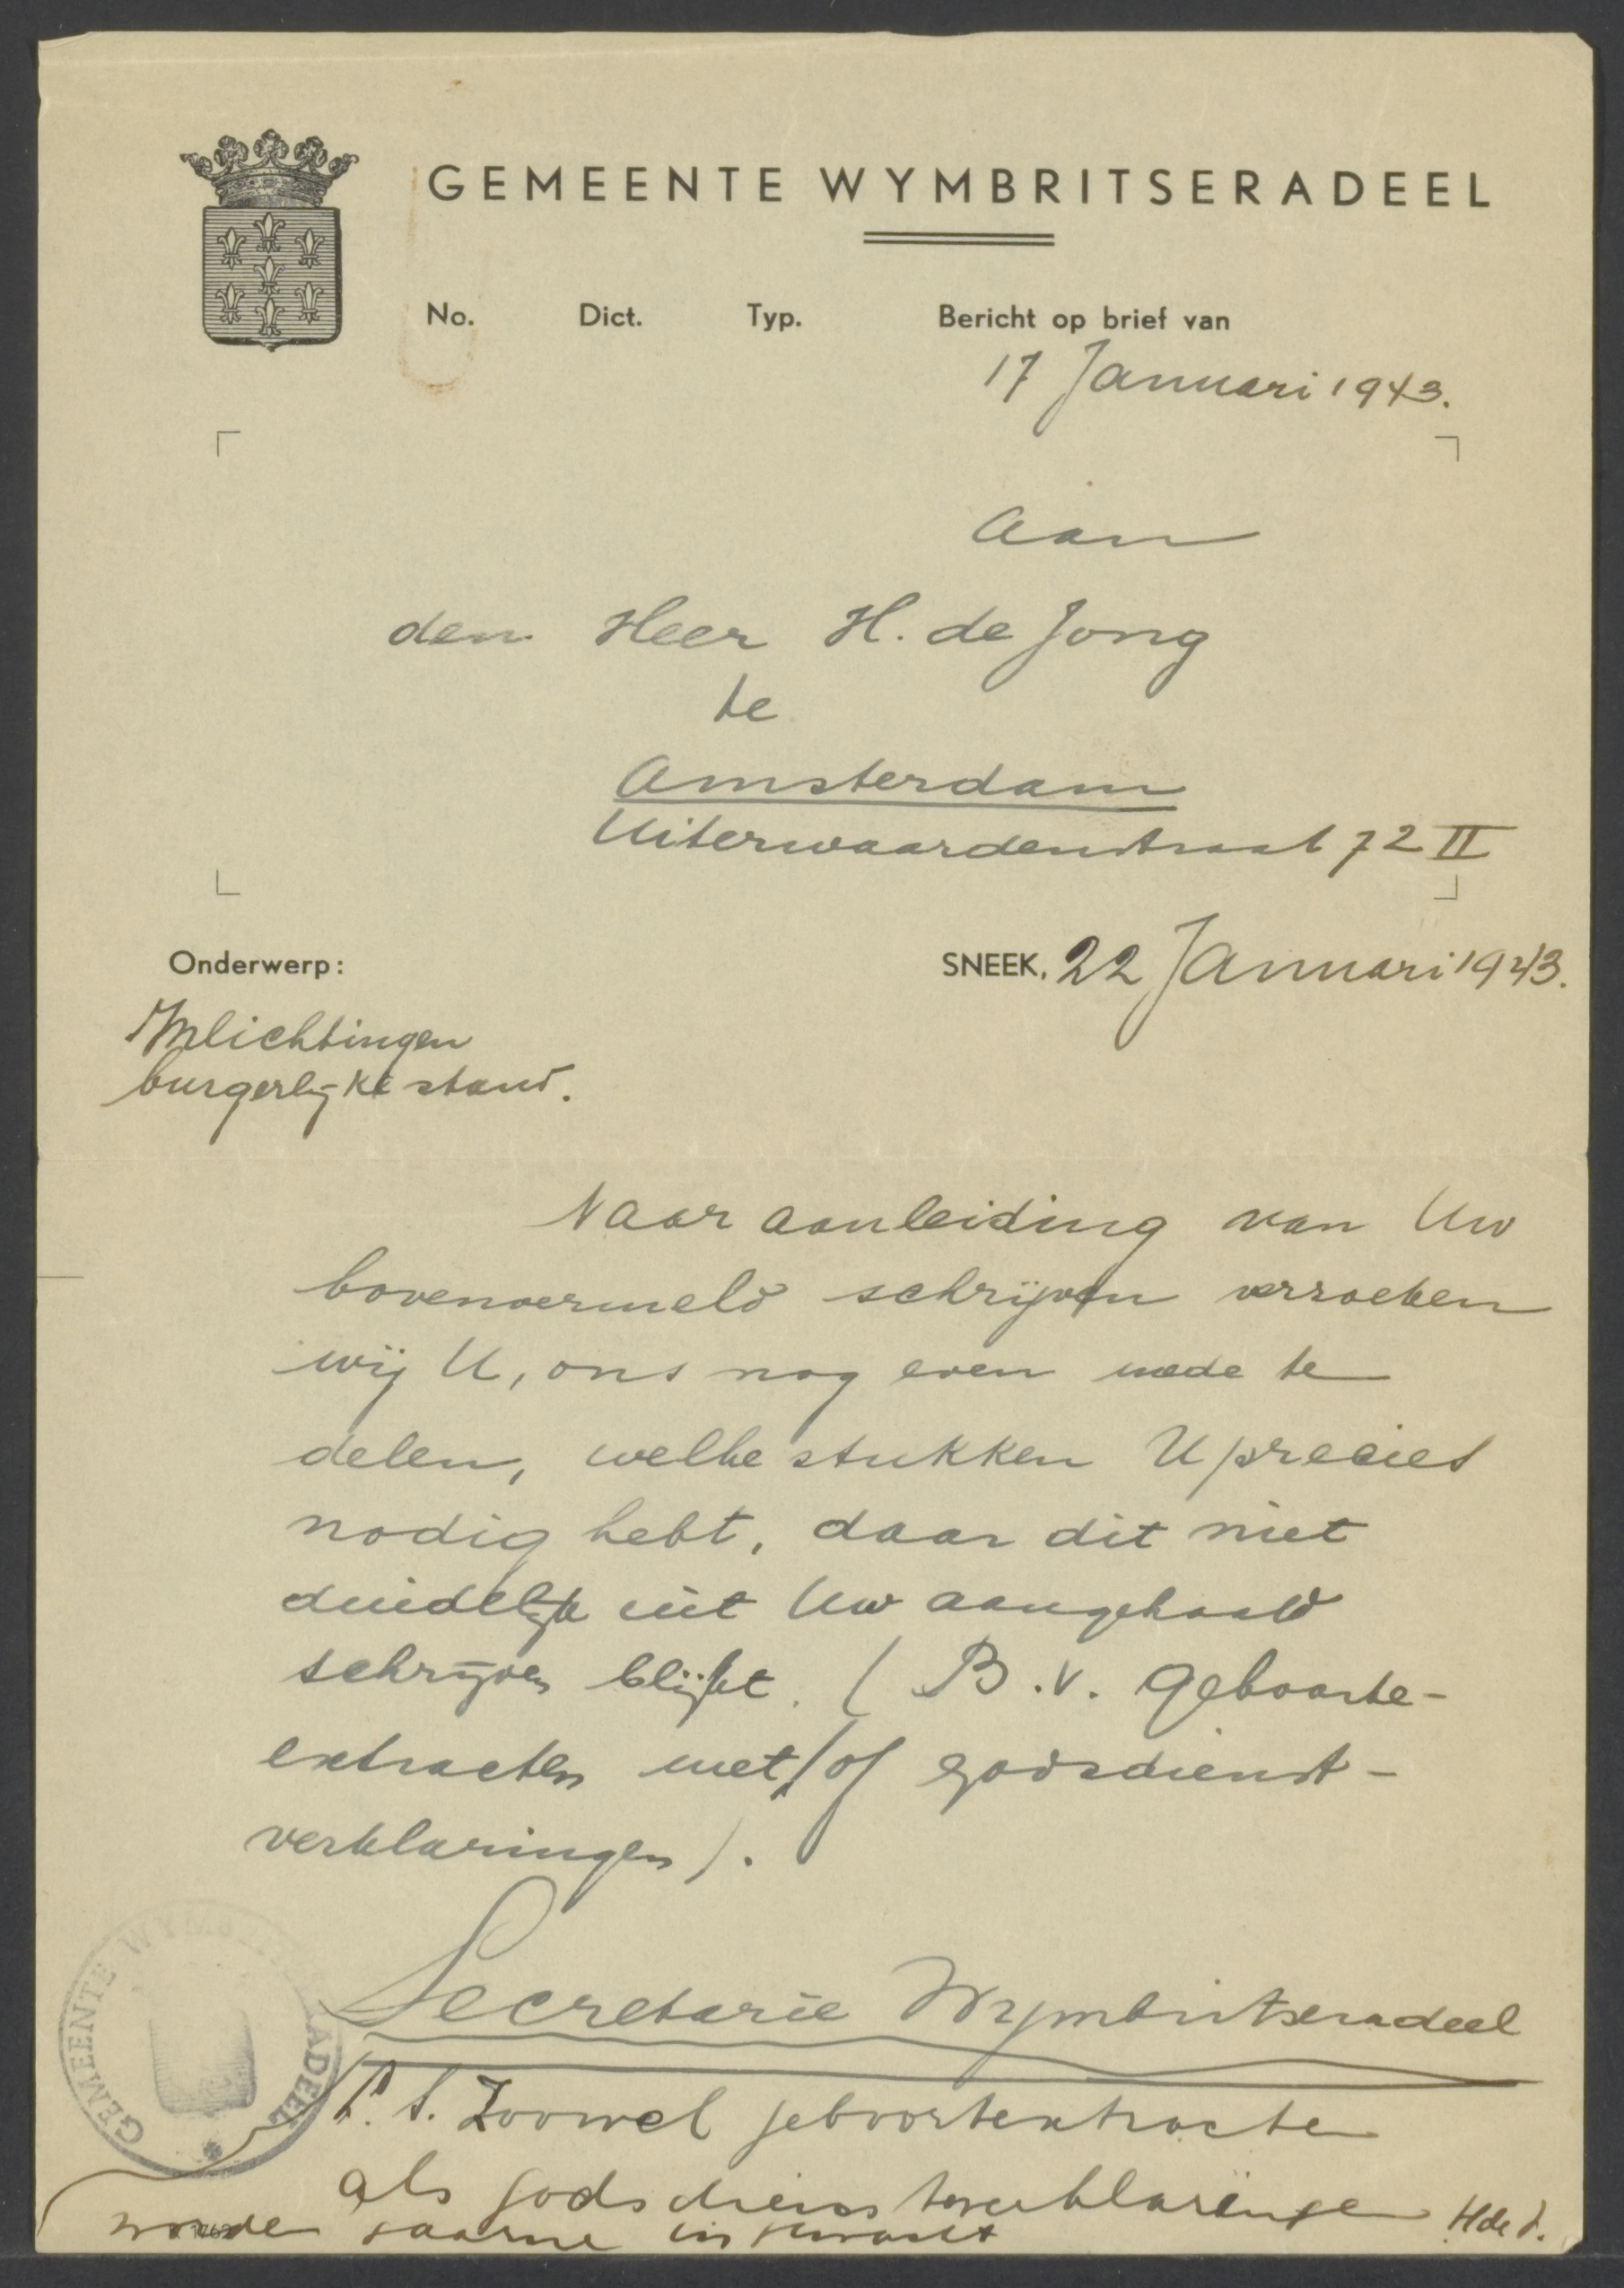 GEMEENTE WYMBRITSERADEEL
No. Dict. Typ. Bericht op brief van
17 Januari 1943.
Aan
den Heer H. de Jong
te
Amsterdam
Uiterwaardenstraat 72 II
Onderwerp: SNEEK, 22 Januari 1943.
Inlichtingen
burgerlijke stand.
Naar aanleiding van Uw
bovenvermeld schrijven verzoeken
wij U, ons nog even mede te
delen, welke stukken U precies
nodig hebt, daar dit niet
duidelijk uit Uw aangehaald
schrijven blijkt. (B.v. geboorte-
extracten met/of godsdienst-
verklaringen).
Secretarie Wymbritseradeel
GEMEENTE WYMBRITSERADEEL
P.S. Zoowel geboortextracten
als godsdienstverklaringen H de J.
worden gaarne ingewacht